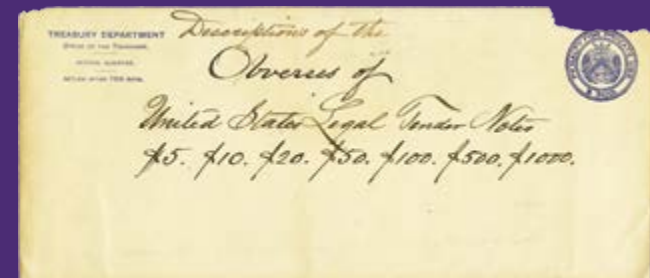 TREASURY DEPARTMENT
OFFICE OF THE TREASURER.
OFFICIAL BUSINESS.
RETURN AFTER TEN DAYS.
Descriptions of the
Obverses of
United States Legal Tender Notes
$5. $10. $20. $50. $100. $500. $1000.